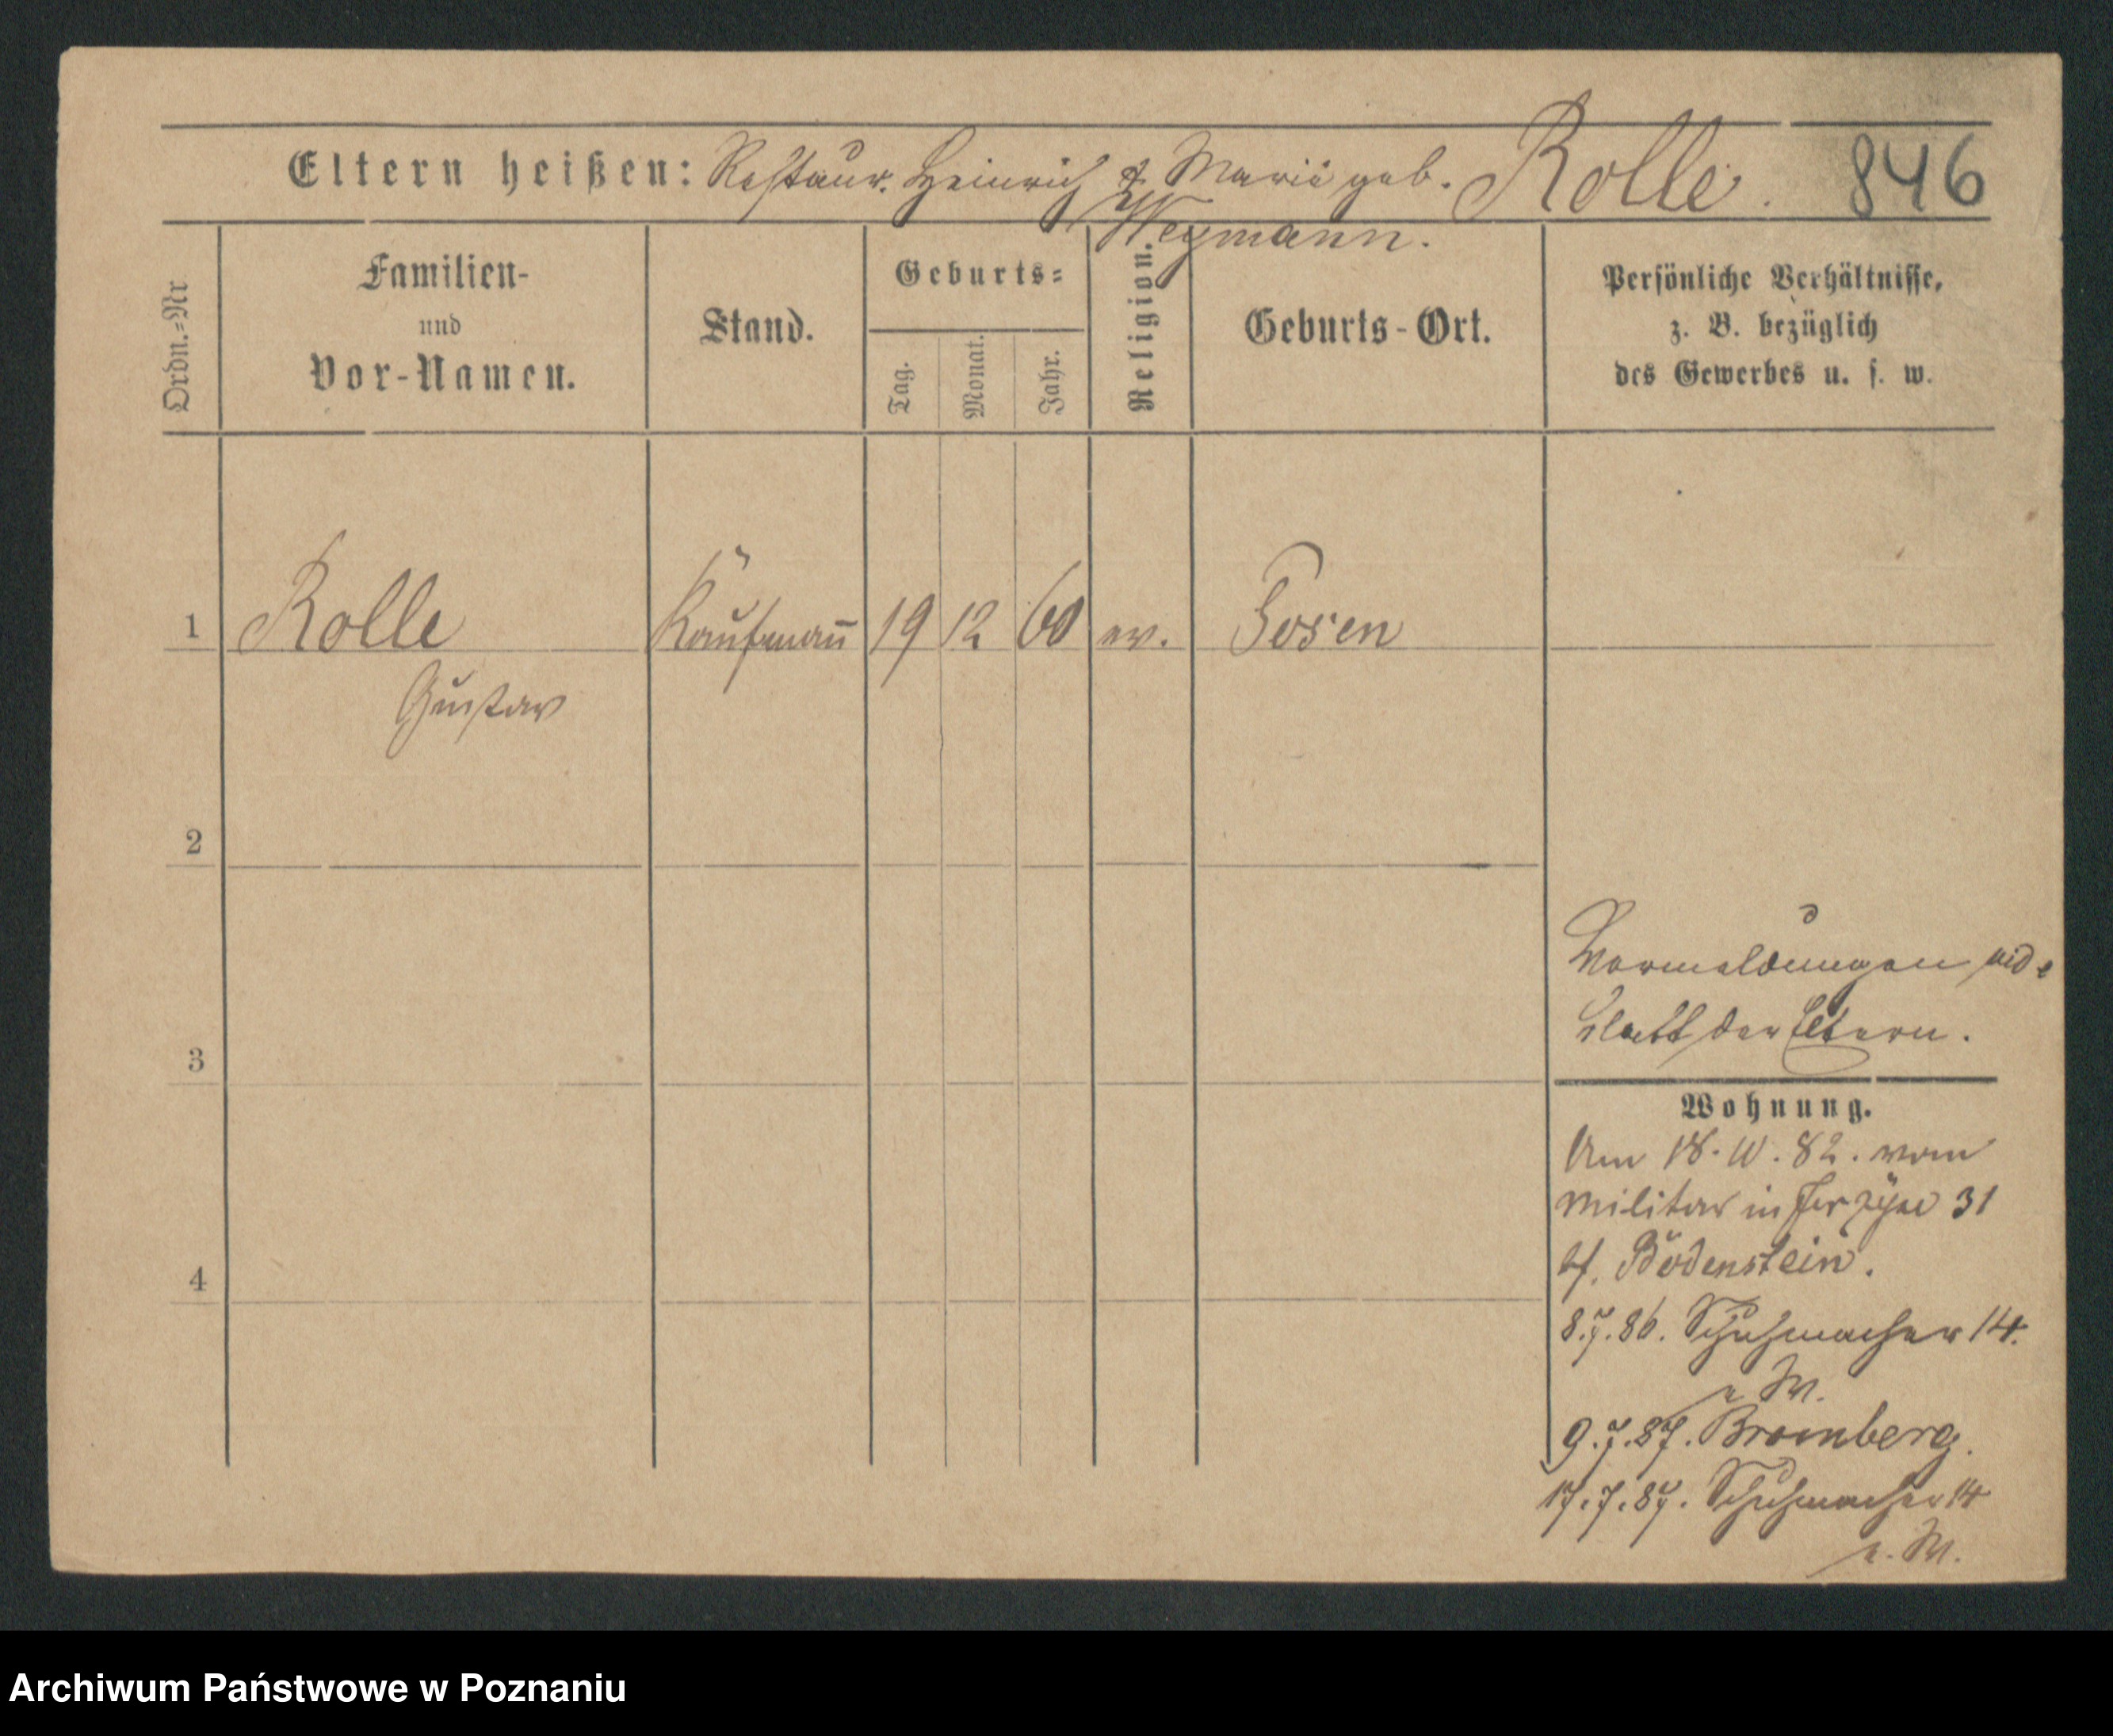 Eltern heißen: Restaur. Heinrich & Marie geb. Rolle. 846
Weymann.
Ordn.=Nr
Familien-
und
Vor-Namen.
Stand.
Geburts=
Tag.
Monat.
Jahr.
Religion.
Geburts-Ort.
Persönliche Verhältnisse,
z. B. bezüglich
des Gewerbes u. s. w.
1 Rolle Kaufmañ 19 12 60 ev. Posen
Gustav
2
3
4
Vormeldungen vide
Blatt der Eltern.
Wohnung.
Am 18. 10. 82. vom
Militär in Jerzyce 31
bf. Bodenstein.
8.7.86. Schuhmacher 14.
9.7.87. Bromberg.
17.7.87. Schuhmacher 14
Archiwum Państwowe w Poznaniu